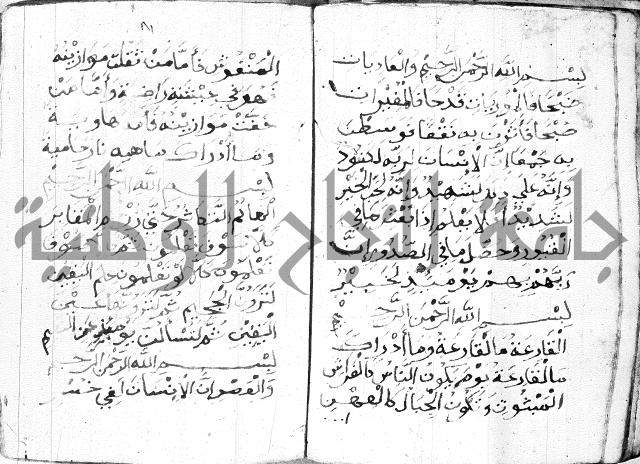 بسم الله الرحمن الرحيم والعاديات
ضبحا فالموريات قدحا فالمغيرات
صبحا فأثرن به نقعا فوسطن
به جمعا إن الإنسان لربه لكنود
وإنه على ذلك لشهيد وإنه لحب الخير
لشديد أفلا يعلم إذا بعثر ما في
القبور وحصل ما في الصدور إن
ربهم بهم يومئذ لخبير
بسم الله الرحمن الرحيم
القارعة ما القارعة وما أدراك
ما القارعة يوم يكون الناس كالفراش
المبثوث وتكون الجبال كالعهن
المنفوش فأما من ثقلت موازينه
فهو في عيشة راضية وأما من
خفت موازينه فأمه هاوية
وما أدراك ماهيه نار حامية
بسم الله الرحمن الرحيم
ألهاكم التكاثر حتى زرتم المقابر
كلا سوف تعلمون ثم كلا سوف
تعلمون كلا لو تعلمون علم اليقين
لترون الجحيم ثم لترونها عين
اليقين ثم لتسألن يومئذ عن النعيم
بسم الله الرحمن الرحيم
والعصر إن الإنسان لفي خسر
جامعة النجاح الوطنية